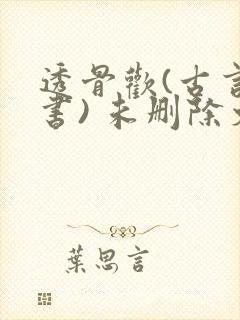 透骨歡(古言
書)未删除
葉思言